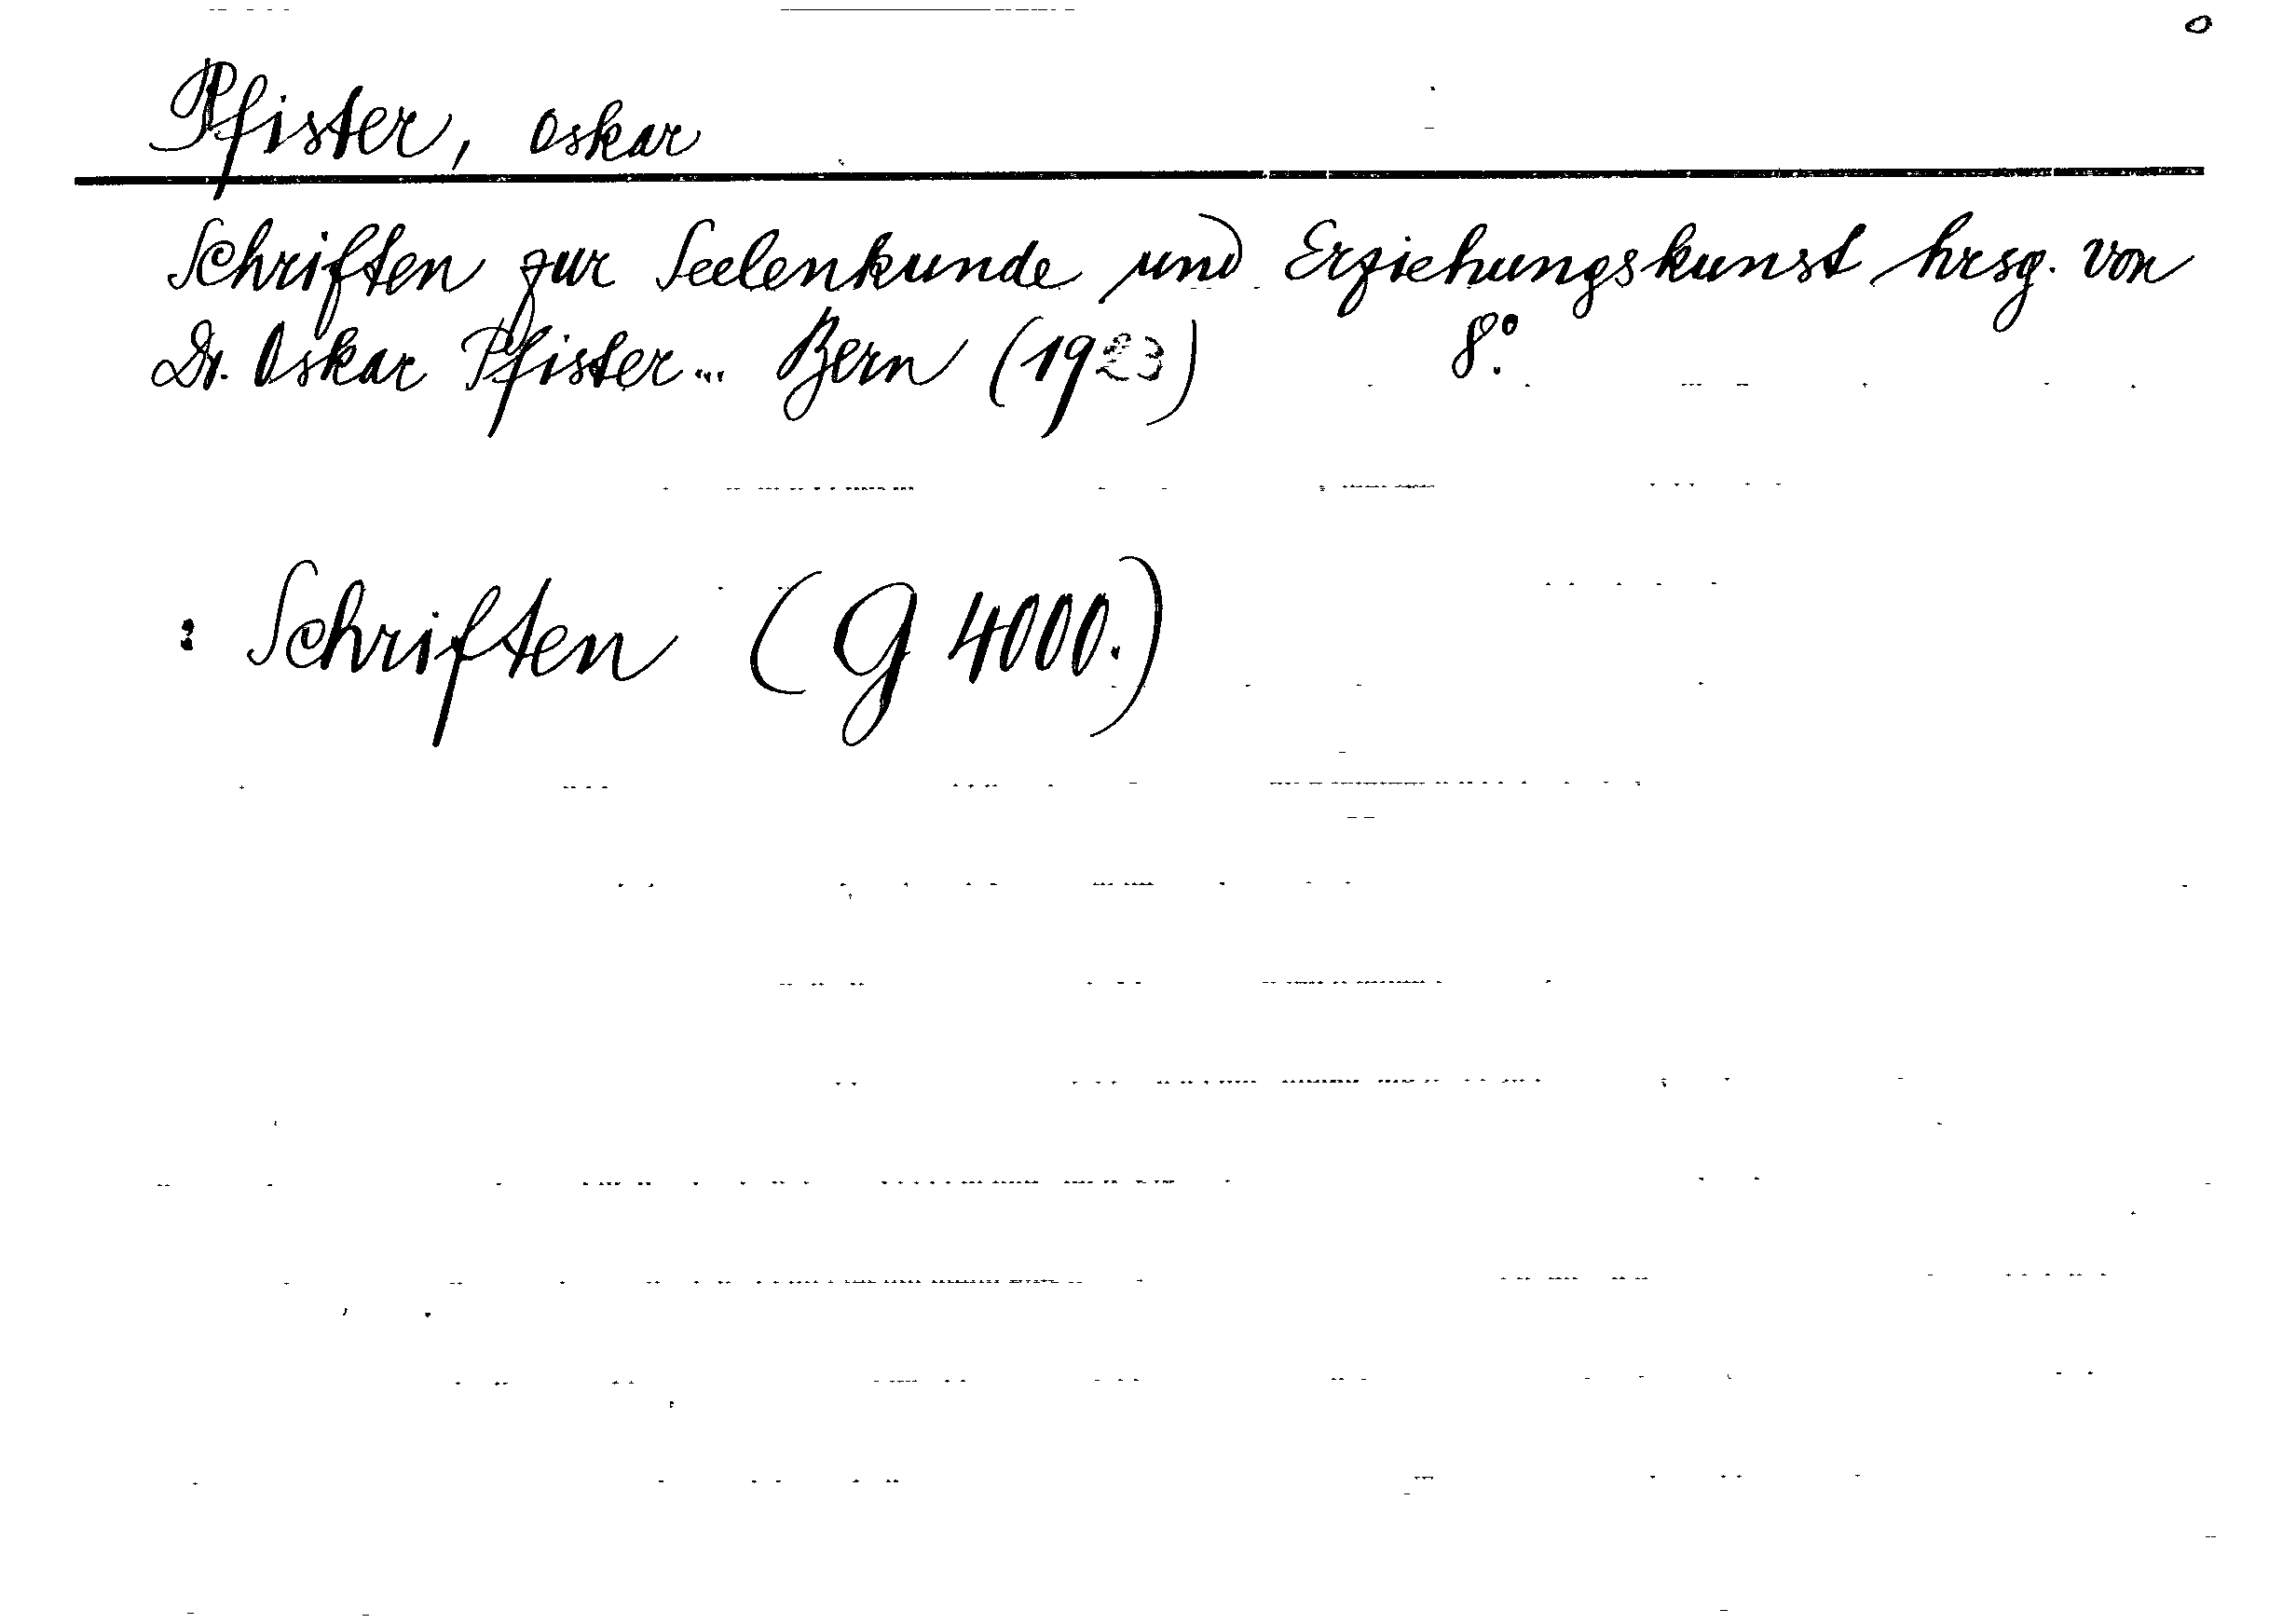 Pfister, Oskar
Schriften zur Seelenkunde und Erziehungskunst hrsg. von
Dr. Oskar Pfister... Bern (1923) 8°.
: Schriften (G 4000.)